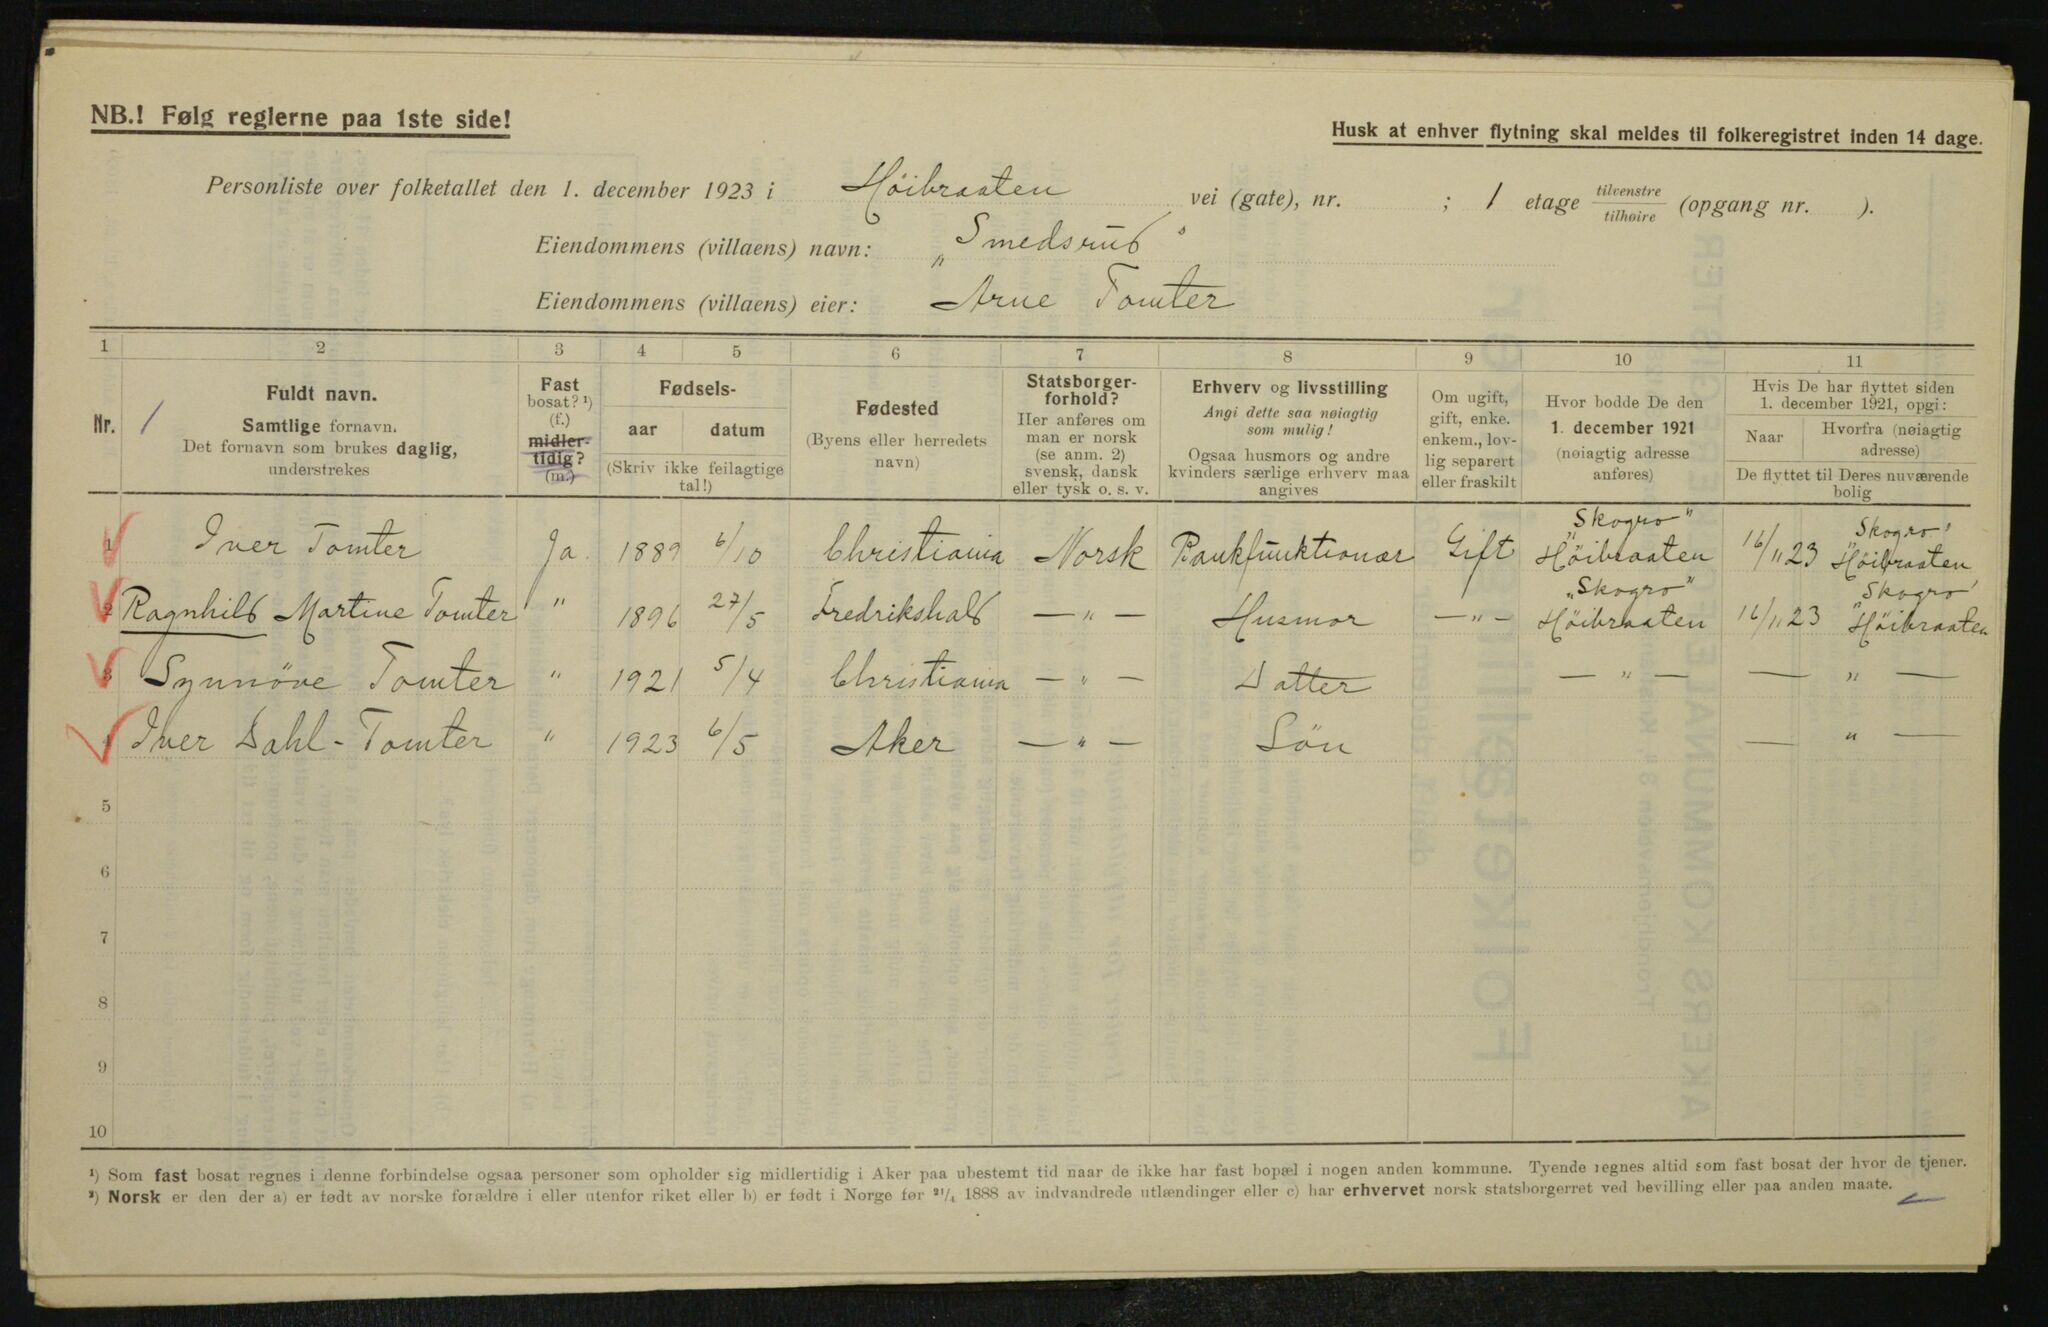 NB.! Følg reglerne paa 1ste side!
Husk at enhver flytning skal meldes til folkeregistret inden 14 dage.
Personliste over folketallet den 1. december 1923 i Höibraaten vei (gate), nr. ; 1 etage tilvenstre/tilhøire (opgang nr. ).
Eiendommens (villaens) navn: „Smedsrud"
Eiendommens (villaens) eier: Arne Tomter
1 2 3 4 5 6 7 8 9 10 11
Nr.
1
Fuldt navn.
Samtlige fornavn.
Det fornavn som brukes daglig,
understrekes
Fast
bosat? ¹)
(f.)
midler-
tidig?
(m.)
Fødsels-
aar datum
(Skriv ikke feilagtige
tal!)
Fødested
(Byens eller herredets
navn)
Statsborger-
forhold?
Her anføres om
man er norsk
(se anm. 2)
svensk, dansk
eller tysk o. s. v.
Erhverv og livsstilling
Angi dette saa nøiagtig
som mulig!
Ogsaa husmors og andre
kvinders særlige erhverv maa
angives
Om ugift,
gift, enke.
enkem., lov-
lig separert
eller fraskilt
Hvor bodde De den
1. december 1921
(nøiagtig adresse
anføres)
Hvis De har flyttet siden
1. december 1921, opgi:
Naar
Hvorfra (nøiagtig
adresse)
De flyttet til Deres nuværende
bolig
1 Iver Tomter Ja. 1889 6/10 Christiania Norsk Bankfunktionær Gift „Skogro" Höibraaten 16/11 23 „Skogro" Höibraaten
2 Ragnhild Martine Tomter " 1896 27/5 Fredrikshald — " — Husmor — " — „Skogro" Höibraaten 16/11 23 „Skogro" Höibraaten
3 Synnöve Tomter " 1921 5/4 Christiania — " — Datter — " — — " —
4 Iver Dahl-Tomter " 1923 6/5 Aker — " — Sön — " —
5
6
7
8
9
10
¹) Som fast bosat regnes i denne forbindelse ogsaa personer som opholder sig midlertidig i Aker paa ubestemt tid naar de ikke har fast bopæl i nogen anden kommune. Tyende regnes altid som fast bosat der hvor de tjener.
²) Norsk er den der a) er født av norske forældre i eller utenfor riket eller b) er født i Norge før 21/4 1888 av indvandrede utlændinger eller c) har erhvervet norsk statsborgerret ved bevilling eller paa anden maate.